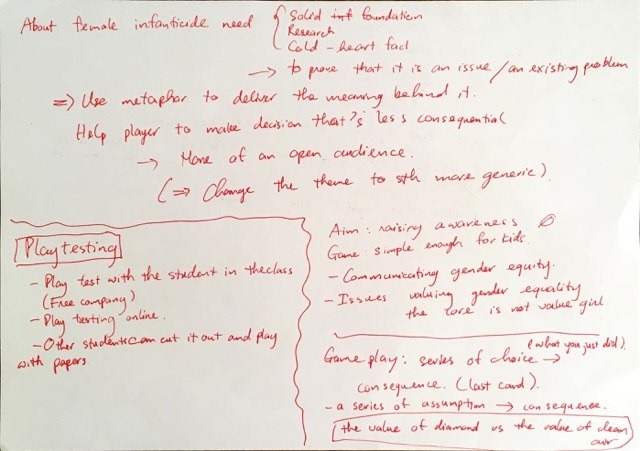 About female infanticide need
Solid inf foundation
Research
Cold - heart fact
→ to prove that it is an issue / an existing problem
⇒ Use metaphor to deliver the meaning behind it.
Help player to make decision that's less consequential
→ More of an open audience.
(⇒ Change the theme to sth more generic).
Playtesting
- Play test with the student in the class
(Free company)
- Play testing online.
- Other students can cut it out and play
with papers.
Aim: raising awareness
Game: simple enough for kids.
- Communicating gender equity.
- Issues valuing gender equality
the core is not value girl
(what you just did).
Game play: series of choice →
consequence. (last card).
- a series of assumption → consequence.
the value of diamond vs the value of clean